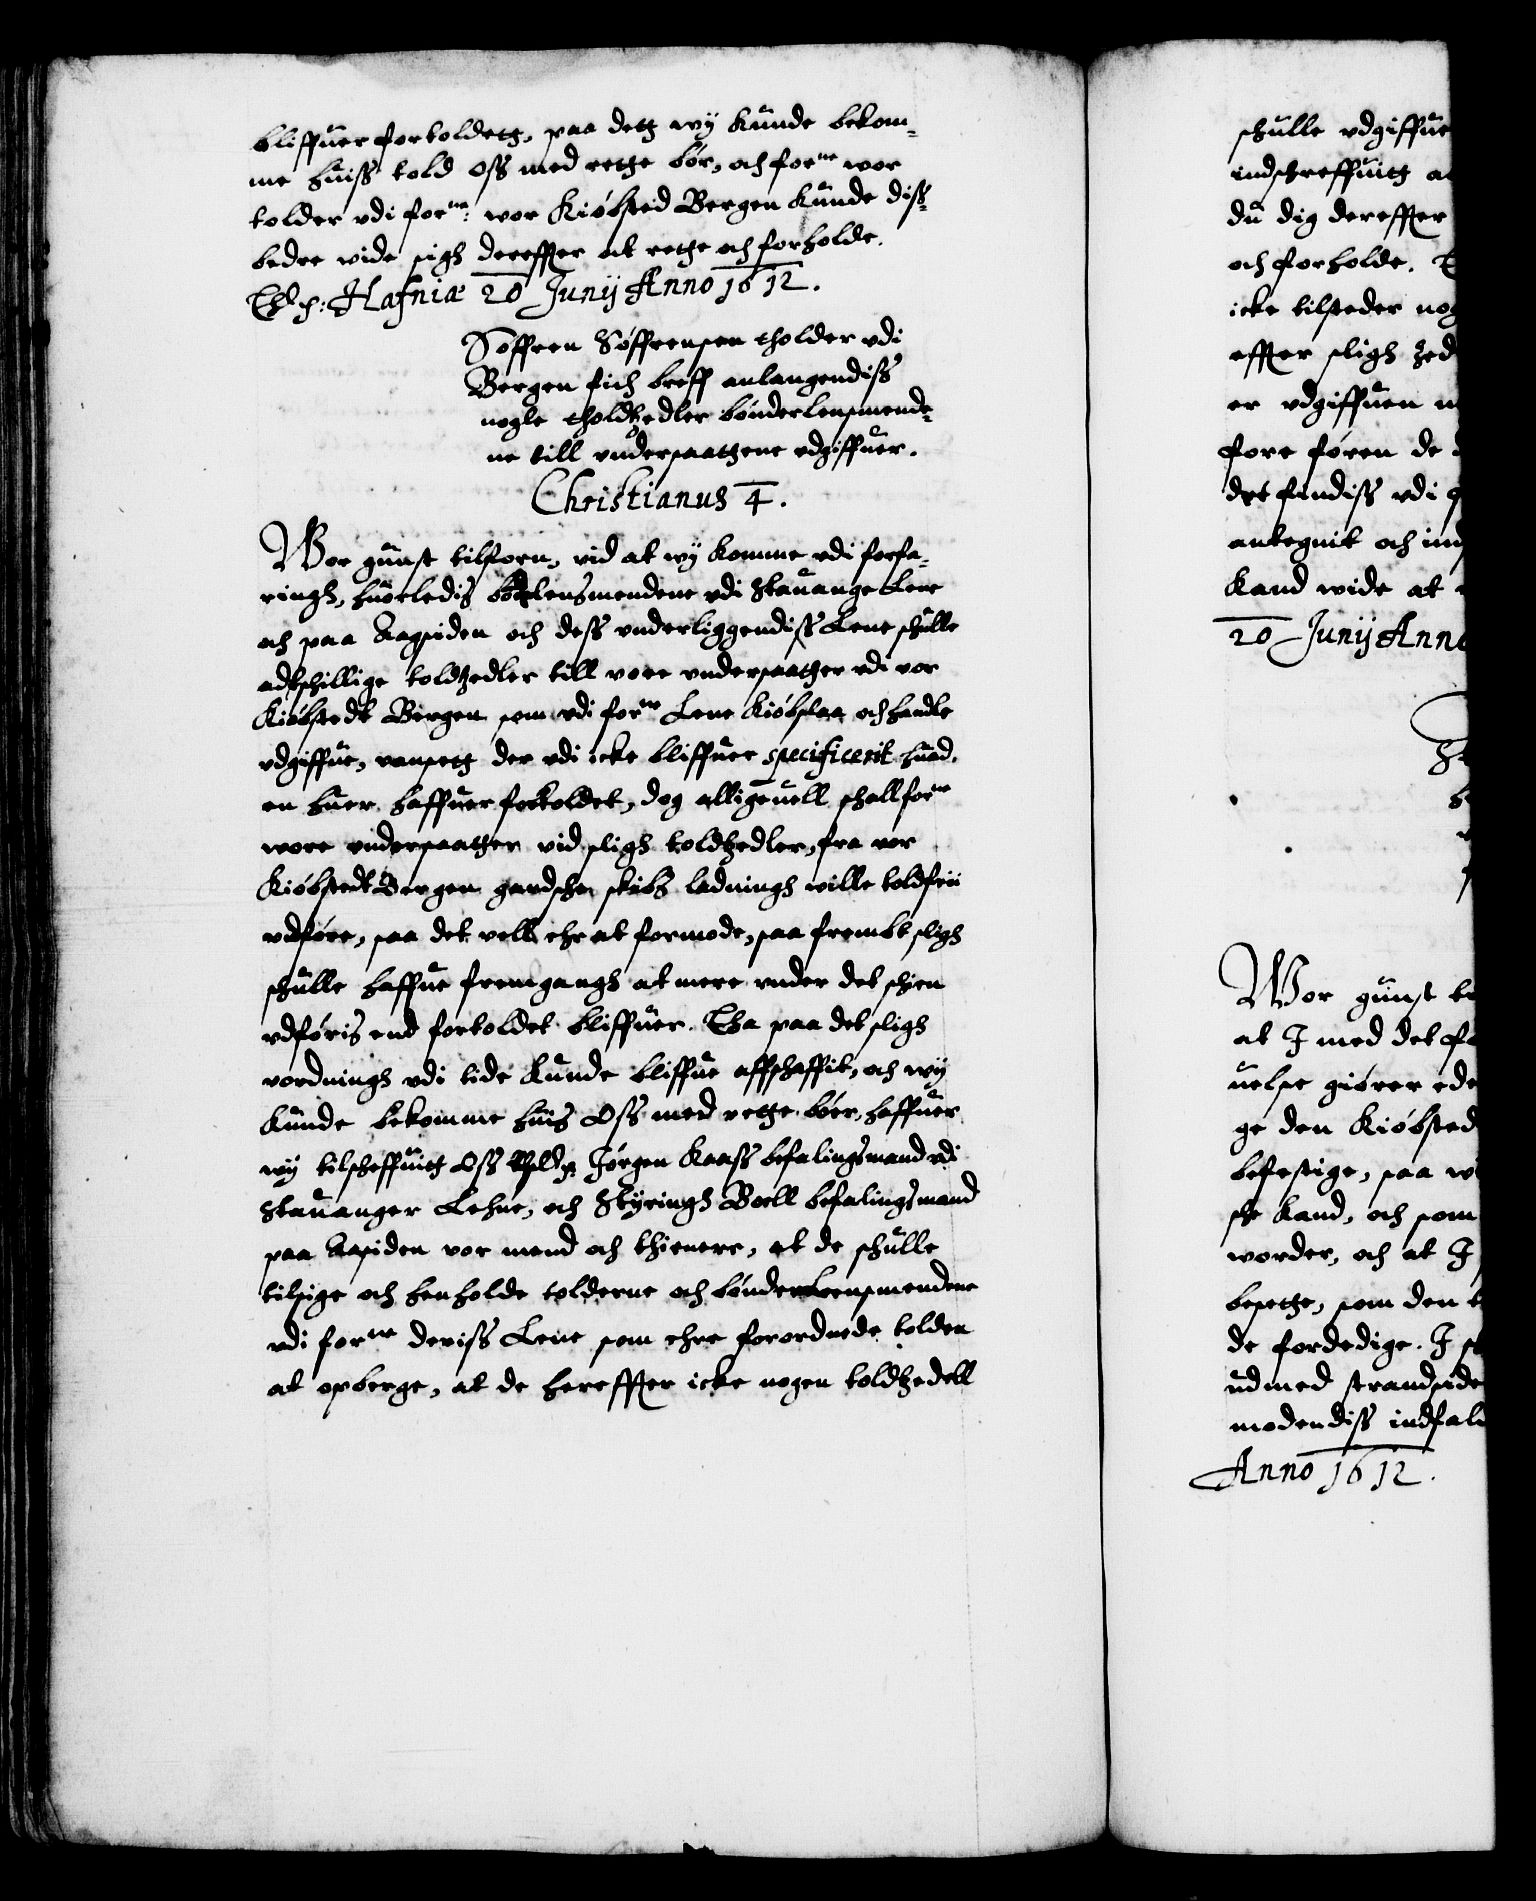 bliffuer fortoldetg, paa detg wÿ kunde bekom-
me huiss told oss med retge bör, och forne wor
tolder vdi forne: wor Kiöbsted Bergen kunde diss-
bedre vide sigh dereffter at retge och forholde.
Ex p: Hafniæ 20 Junij Anno 1612.
Söffren Söffrensen tholder vdi
Bergen fich breff anlangendiss
nogle tholdtzedler bönderlensmende-
ne till vndersaatgene vdgiffuer.
Christianus 4.
Wor gunst tilforn, vid at wÿ komme vdi forfa-
ringh, huorledis lensmendene vdi Stauanger Lene
och paa Aagsiden och dess vnderliggendiss Lene schulle
adtschillige toldtzedler till vore vndersaather vdi vor
Kiöbstedt Bergen som vdi forne Lene kiöbslaa och handle
vdgiffue, vansetg der vdi icke bliffuer specificerit huad,
en huer haffuer fortoldet, dog alligeuell schall forne
wore vndersaather vid sligh toldtzedler, fra vor
Kiöbstedt Bergen gandsche skibs ladningh wille toldfrii
vdföre, saa det vell ehr at formode, saa frembt sligh
schulle haffue fremgangh at mere vnder det schien
vdföris end fortoldet bliffuer. Tha paa det sligh
vordningh vdi tide kunde bliffue affschaffit, och wÿ
kunde bekomme huis Oss med retge böer, haffuer
wÿ tilscheffuitg Oss Jörgen Kaass befalingsmand vdi
Stauanger Lehne, och Styringh Boell befalingsmand
paa Aasiden vor mend och thienere, at de schulle
tilsige och henholde tolderne och bönderLeensmendene
vdi forne deriss Lene som ehre forordnede tolden
at opberge, at de hereffter icke nogen toldtzedell
schulle vdgiffue
indschreffuitg
du dig dereffter
och forholde.
icke tilsteder
effter sligh
er vdgiffuen
fore fören de
det findiss vdi
antegnit och
kand wide at
20 Junij Anno
Wor gunst
at I med det
uelse giörer
ge den Kiöbsted
befestige, saa
sche kand, och som
worder, och at I
besetge, som den
de fordedige. I
udmed strandside
modendiss indfald
Anno 1612.